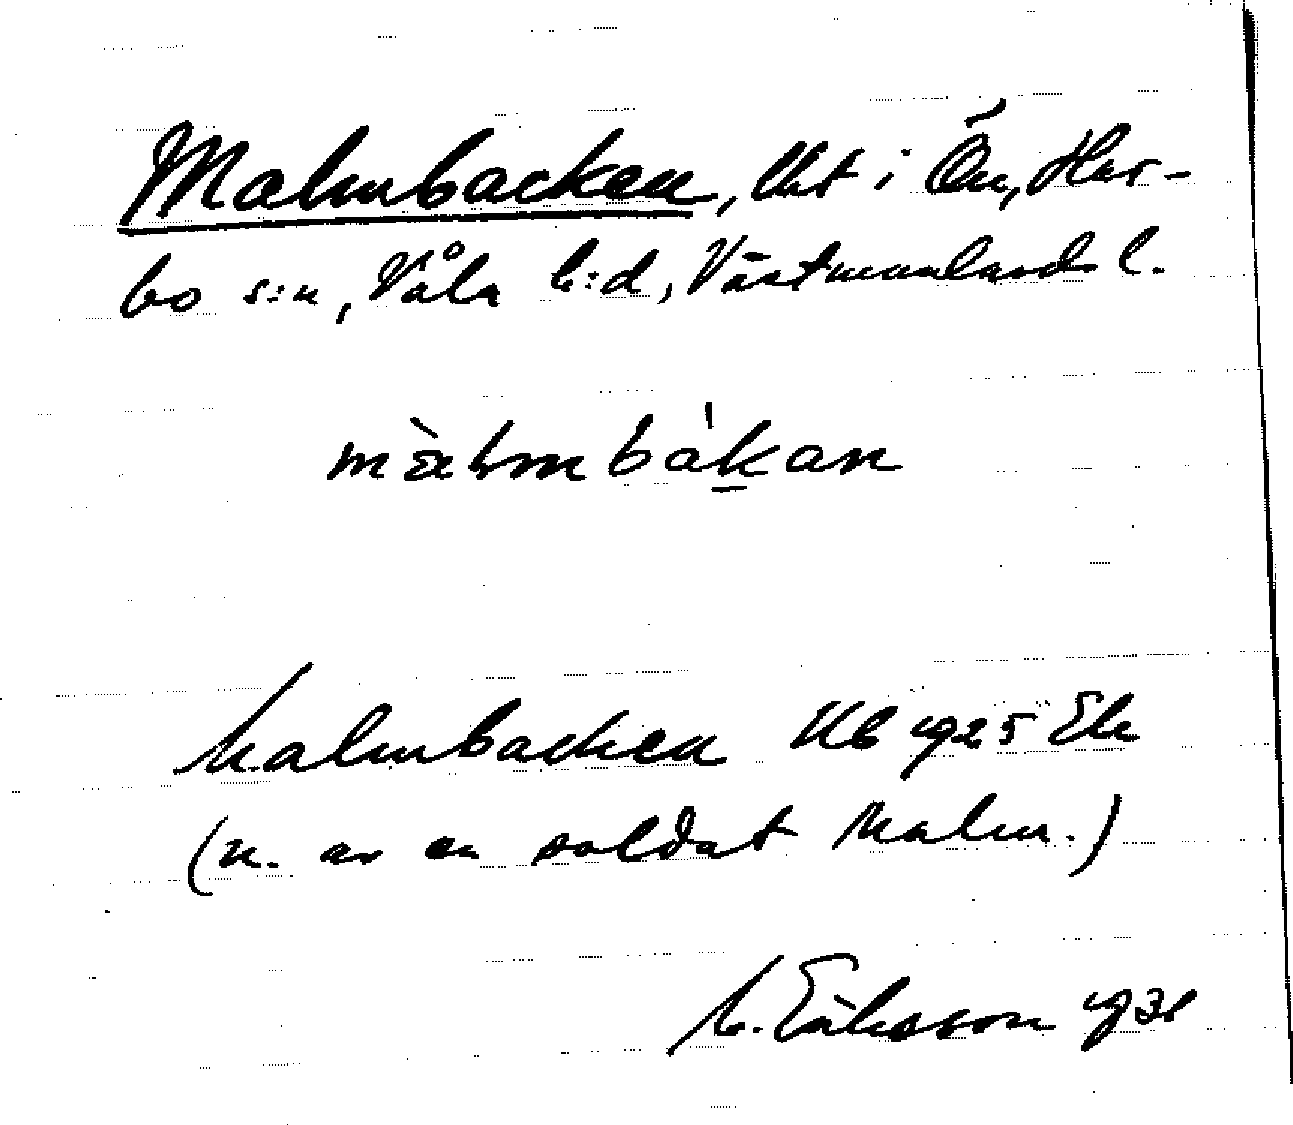 Malmbacken, lht i Ön, Har-
bo s:n, Våla h:d, Västmanlands l.
màlmbákan
Malmbacken Kb 1925 Ek
(n. av en soldat Malm.)
M. Eriksson 1931